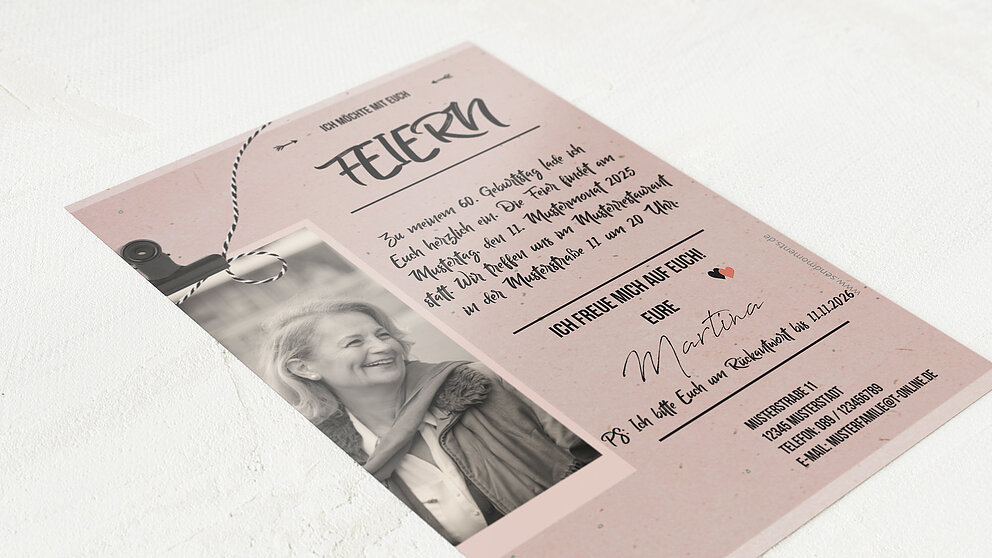 ICH MÖCHTE MIT EUCH
FEIERN
Zu meinem 60. Geburtstag lade ich
Euch herzlich ein. Die Feier findet am
Mustertag, den 11. Mustermonat 2025
statt. Wir treffen uns im Musterrestaurant
in der Musterstraße 11 um 20 Uhr.
ICH FREUE MICH AUF EUCH!
EURE
Martina
PS: Ich bitte Euch um Rückantwort bis 11.11.2026
MUSTERSTRAßE 11
12345 MUSTERSTADT
TELEFON: 089 / 123456789
E-MAIL: MUSTERFAMILIE@T-ONLINE.DE
www.sendmoments.de